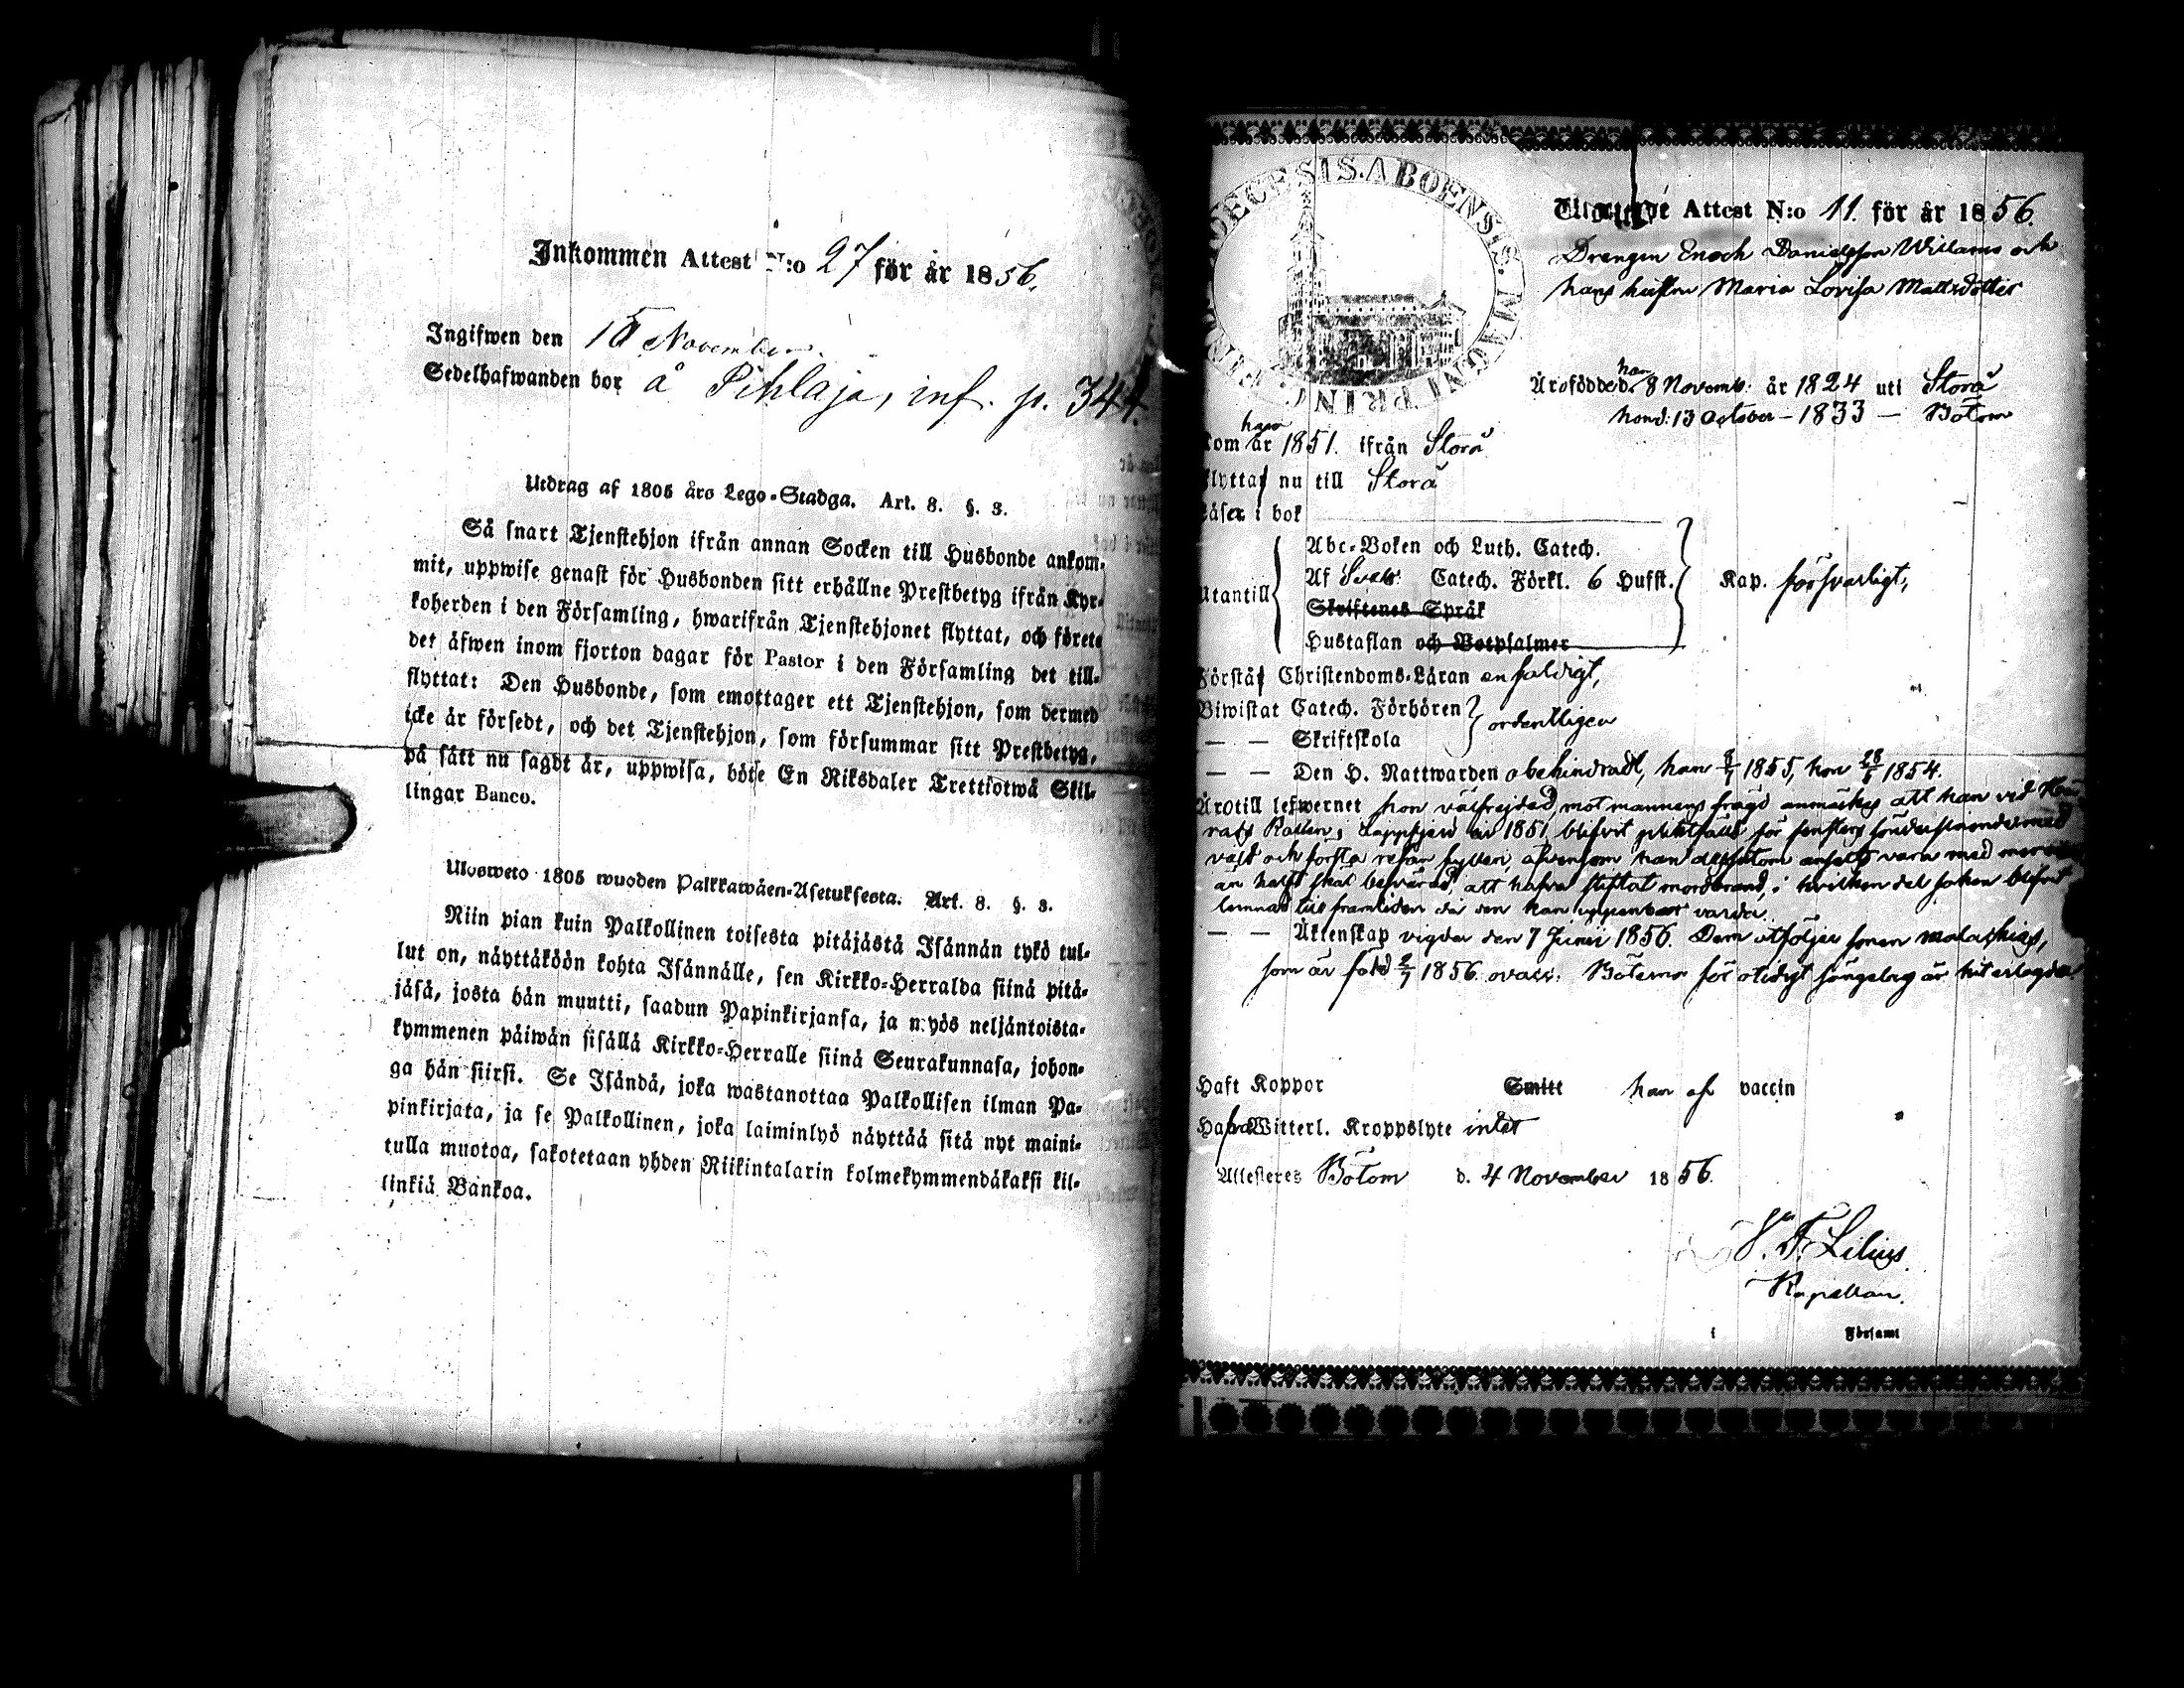 Inkommen Attest N:o 27 för år 1856.
Ingifwen den 15 November.
Sedelhafwanden bor å Pihlaja, inf. p. 344.
Utdrag af 1805 års Lego-Stadga. Art. 8. §. 3.
Så snart Tjenstehjon ifrån annan Socken till Husbonde ankom-
mit, uppwise genast för Husbonden sitt erhållne Prestbetyg ifrån Kyr-
koherden i den Församling, hwarifrån Tjenstehjonet flyttat, och förete
det äfwen inom fjorton dagar för Pastor i den Församling det till-
flyttat: Den Husbonde, som emottager ett Tjenstehjon, som dermed
icke är försedt, och det Tjenstehjon, som försummar sitt Prestbetyg,
på sätt nu sagdt är, uppwisa, böte En Riksdaler Trettiotwå Skil-
lingar Banco.
Ulosweto 1805 wuoden Palkkawäen-Asetuksesta. Art. 8. §. 3.
Niin pian kuin Palkollinen toisesta pitäjästä Isännän tykö tul-
lut on, näyttäköön kohta Isännälle, sen Kirkko-Herralda siinä pitä-
jäsä, josta hän muutti, saadun Papinkirjansa, ja myös neljäntoista-
kymmenen päiwän sisällä Kirkko-Herralle siinä Seurakunnasa, johon-
ga hän siirsi. Se Isändä, joka wastanottaa Palkollisen ilman Pa-
pinkirjata, ja se Palkollinen, joka laiminlyö näyttää sitä nyt maini-
tulla muotoa, sakotetaan yhden Riikintalarin kolmekymmendäkaksi kil-
linkiä Bankoa.
DIOECESIS ABOENSIS MAGNI PRINC
Attest N:o 11. för år 1856.
Drengen Enoch Danielsson Willams och
hans hustru Maria Lovisa Mattsdotter
Äro födde han d. 8 Novemb. år 1824 uti Storå
hon d: 13 October - 1833 - Bötom
Kom han år 1851. ifrån Storå
Flytta nu till Storå
Läsa i bok
Utantill
Abc-Boken och Luth. Catech.
Af Sveb: Catech. Förkl. 6 Hufst.
Skriftenes Språk
Hustaflan och Botpsalmer
Kap. försvarligt,
Förstå Christendoms-Läran enfaldigt,
Biwistat Catech. Förhören
— — Skriftskola
ordentligen
— — Den H. Nattwarden obehindradt, han 8/7 1855, hon 28/5 1854.
Äro till lefwernet hon välfrejdad, mot mannens fräjd anmärkes att han vid Hä-
rads Rätten i Lappfjerd år 1851 blifvit pliktfälld för fensters sönderslående med
våld och första resan fylleri, äfvensom han dessutom ansetts vara med mera
än halft skäl besvärad, att hafva stiftat mordbrand, i hvilken del saken blifvit
lemnad till framtiden då den kan uppenbar varda.
— — Äktenskap vigda den 7 Junii 1856. Dem åtföljer sonen Malachias,
som är född 2/7 1856. ovacc. Böterna för otidigt sängelag är hit erlagda
Haft Koppor Smitt han af vaccin
Hafva Witterl. Kroppslyte intet
Attesteres Bötom d. 4 November 1856.
Lilius.
Kapellan.
i Församl